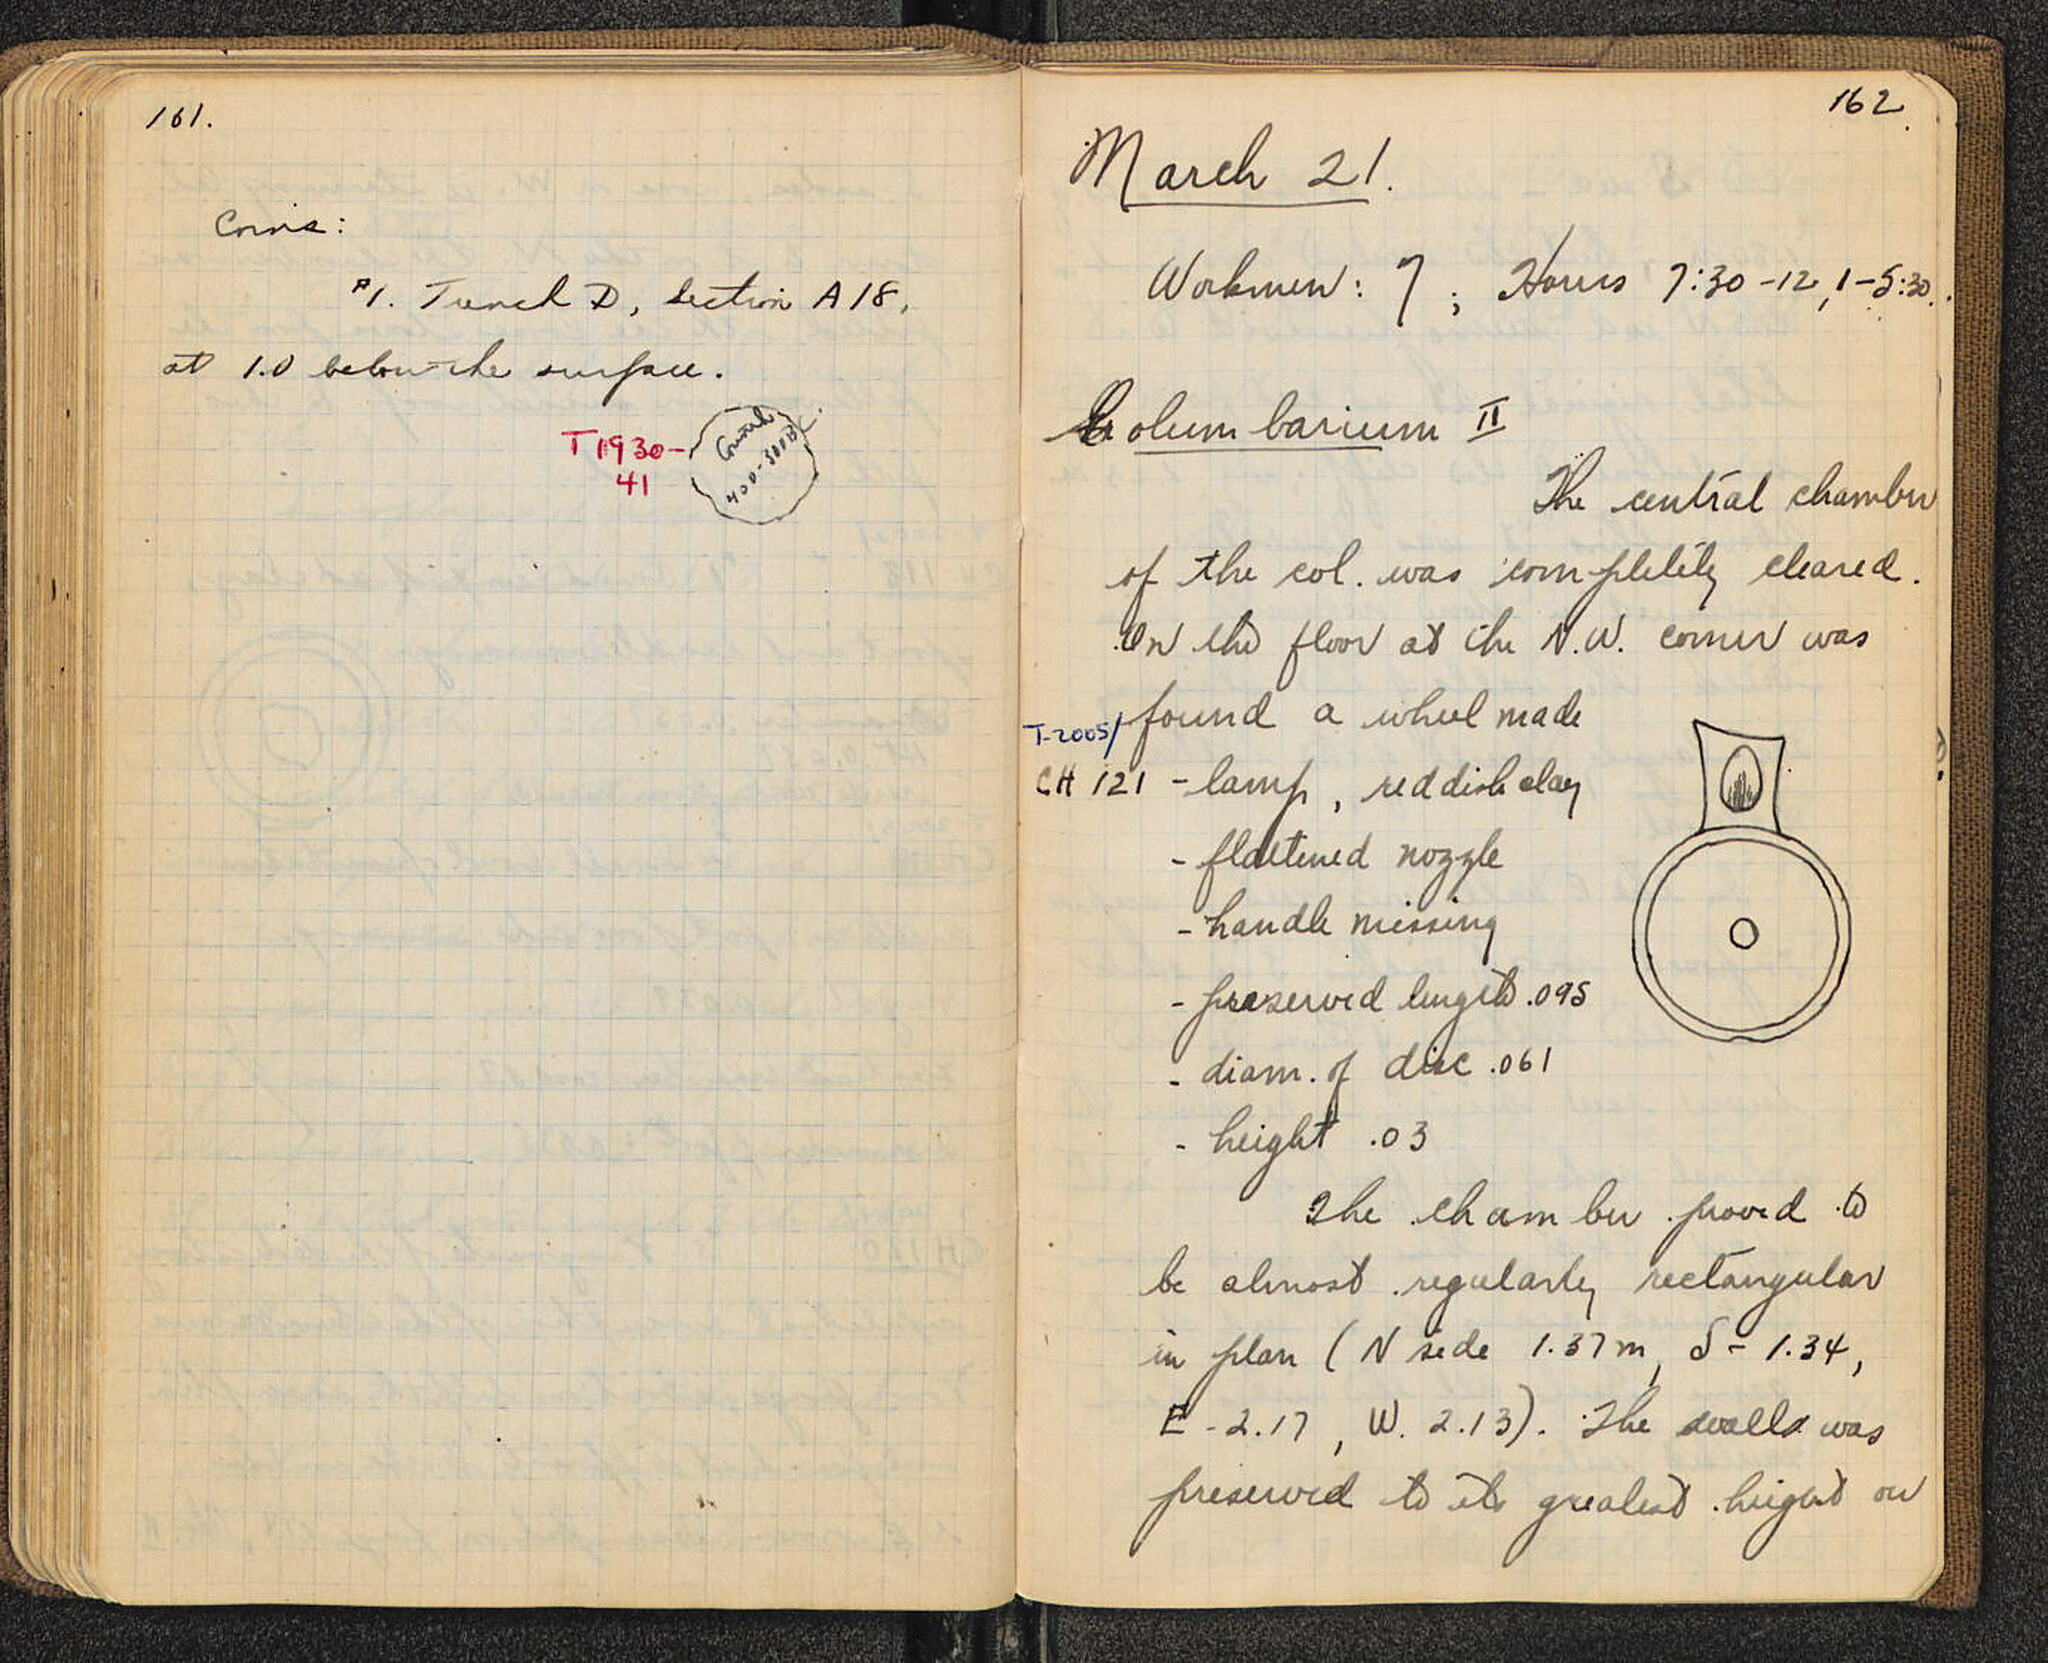 161.
Coins:
#1. Trench D, Section A 18,
at 1.0 below the surface.
T 1930-
41
Corinth
400-300 B.C.
162.
March 21.
Workmen: 7 ; Hours 7:30-12, 1-5:30.
Columbarium II
The central chamber
of the col. was completely cleared.
On the floor at the N.W. corner was
found a wheel made
T-2005/
CH 121 - lamp, reddish clay
- flattened nozzle
- handle missing
- preserved length .095
- diam. of disc .061
- height .03
The chamber proved to
be almost regularly rectangular
in plan (N side 1.37m, S - 1.34,
E - 2.17, W. 2.13). The walls was
preserved to its greatest height on